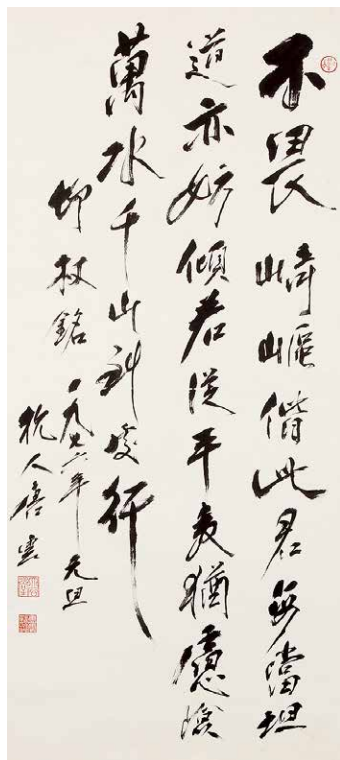 不畏崎嶇偕此君每當坦
道亦妨傾若從平處猶慮險
萬水千山到處行
杖銘
一九七六年元旦
杭人唐雲